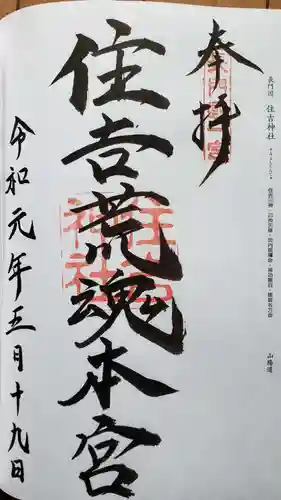 長門国 住吉神社
山陽道
奉拝
住吉荒魂本宮
住吉神社
令和元年五月十九日